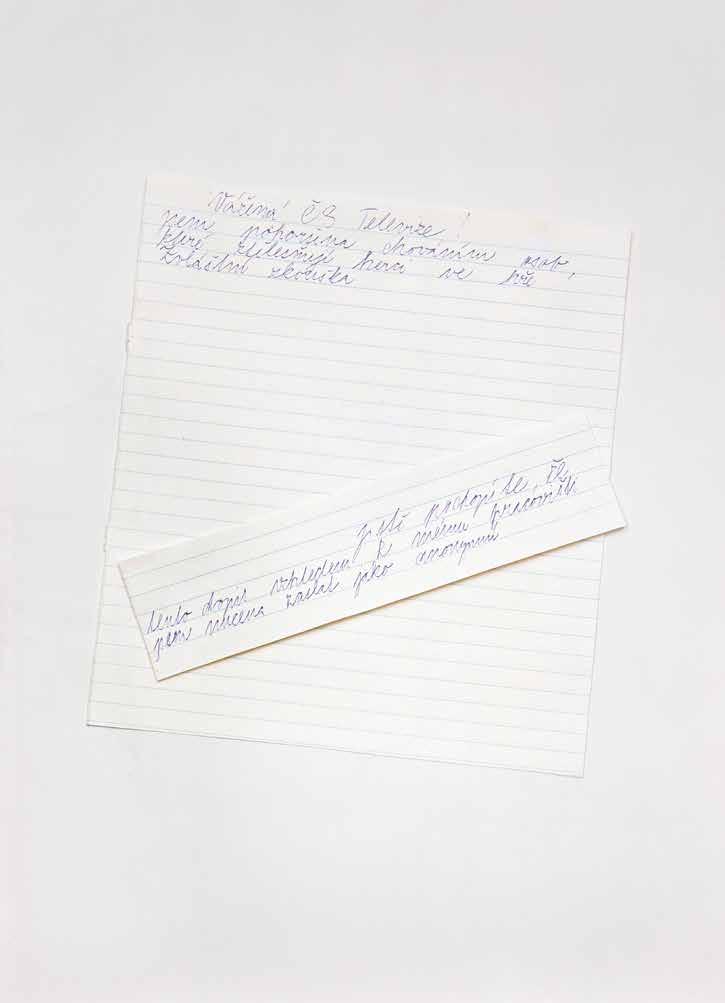 Vážená ČS Televize!
jsem pohoršena chováním osob,
které ztělesňují herci ve hře
Zvláštní zkouška
jistě pochopíte, že
tento dopis vzhledem k mému pracovišti
jsem nucena zaslat jako anonymní